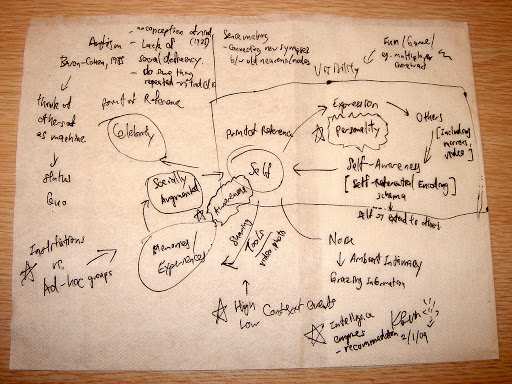 Autism
- no conception of mind
(1985)
- Lack of
social deficiency.
- do same thing
Baron-Cohen, 1985
think of
others
as machine
status
Quo
Sense making
- connecting new synapses
b/w old neurons/nodes
Fun/Game/
eg. multiplayer
VISIBILITY
Point of Reference
Celebrity
Point of Reference
Self
Expression
Personality
Others
[including
mirrors,
video]
Self-Awareness
[Self-Referential Encoding]
schema
Self → extend to others
Socially
Augmented
Awareness
Memories/
Experiences
Sharing
Tools
video, photo
Institutions
vs.
Ad-hoc groups
High Context events
Low
None
↓ Ambient Intimacy
Grazing Information
Intelligence
engines
- recommendation
2/1/09